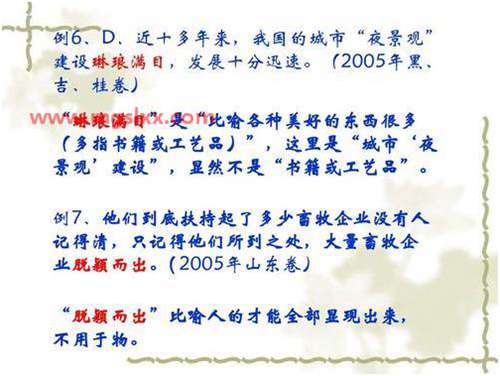 例6、D、近十多年来，我国的城市“夜景观”
建设琳琅满目，发展十分迅速。（2005年黑、
吉、桂卷）
“琳琅满目”是“比喻各种美好的东西很多
（多指书籍或工艺品）”，这里是“城市‘夜
景观’建设”，显然不是“书籍或工艺品”。
例7、他们到底扶持起了多少畜牧企业没有人
记得清，只记得他们所到之处，大量畜牧企
业脱颖而出。（2005年山东卷）
“脱颖而出”比喻人的才能全部显现出来，
不用于物。